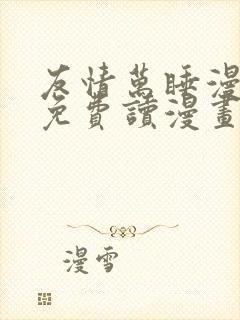 友情萬睡漫
免費讀漫畫
漫雪